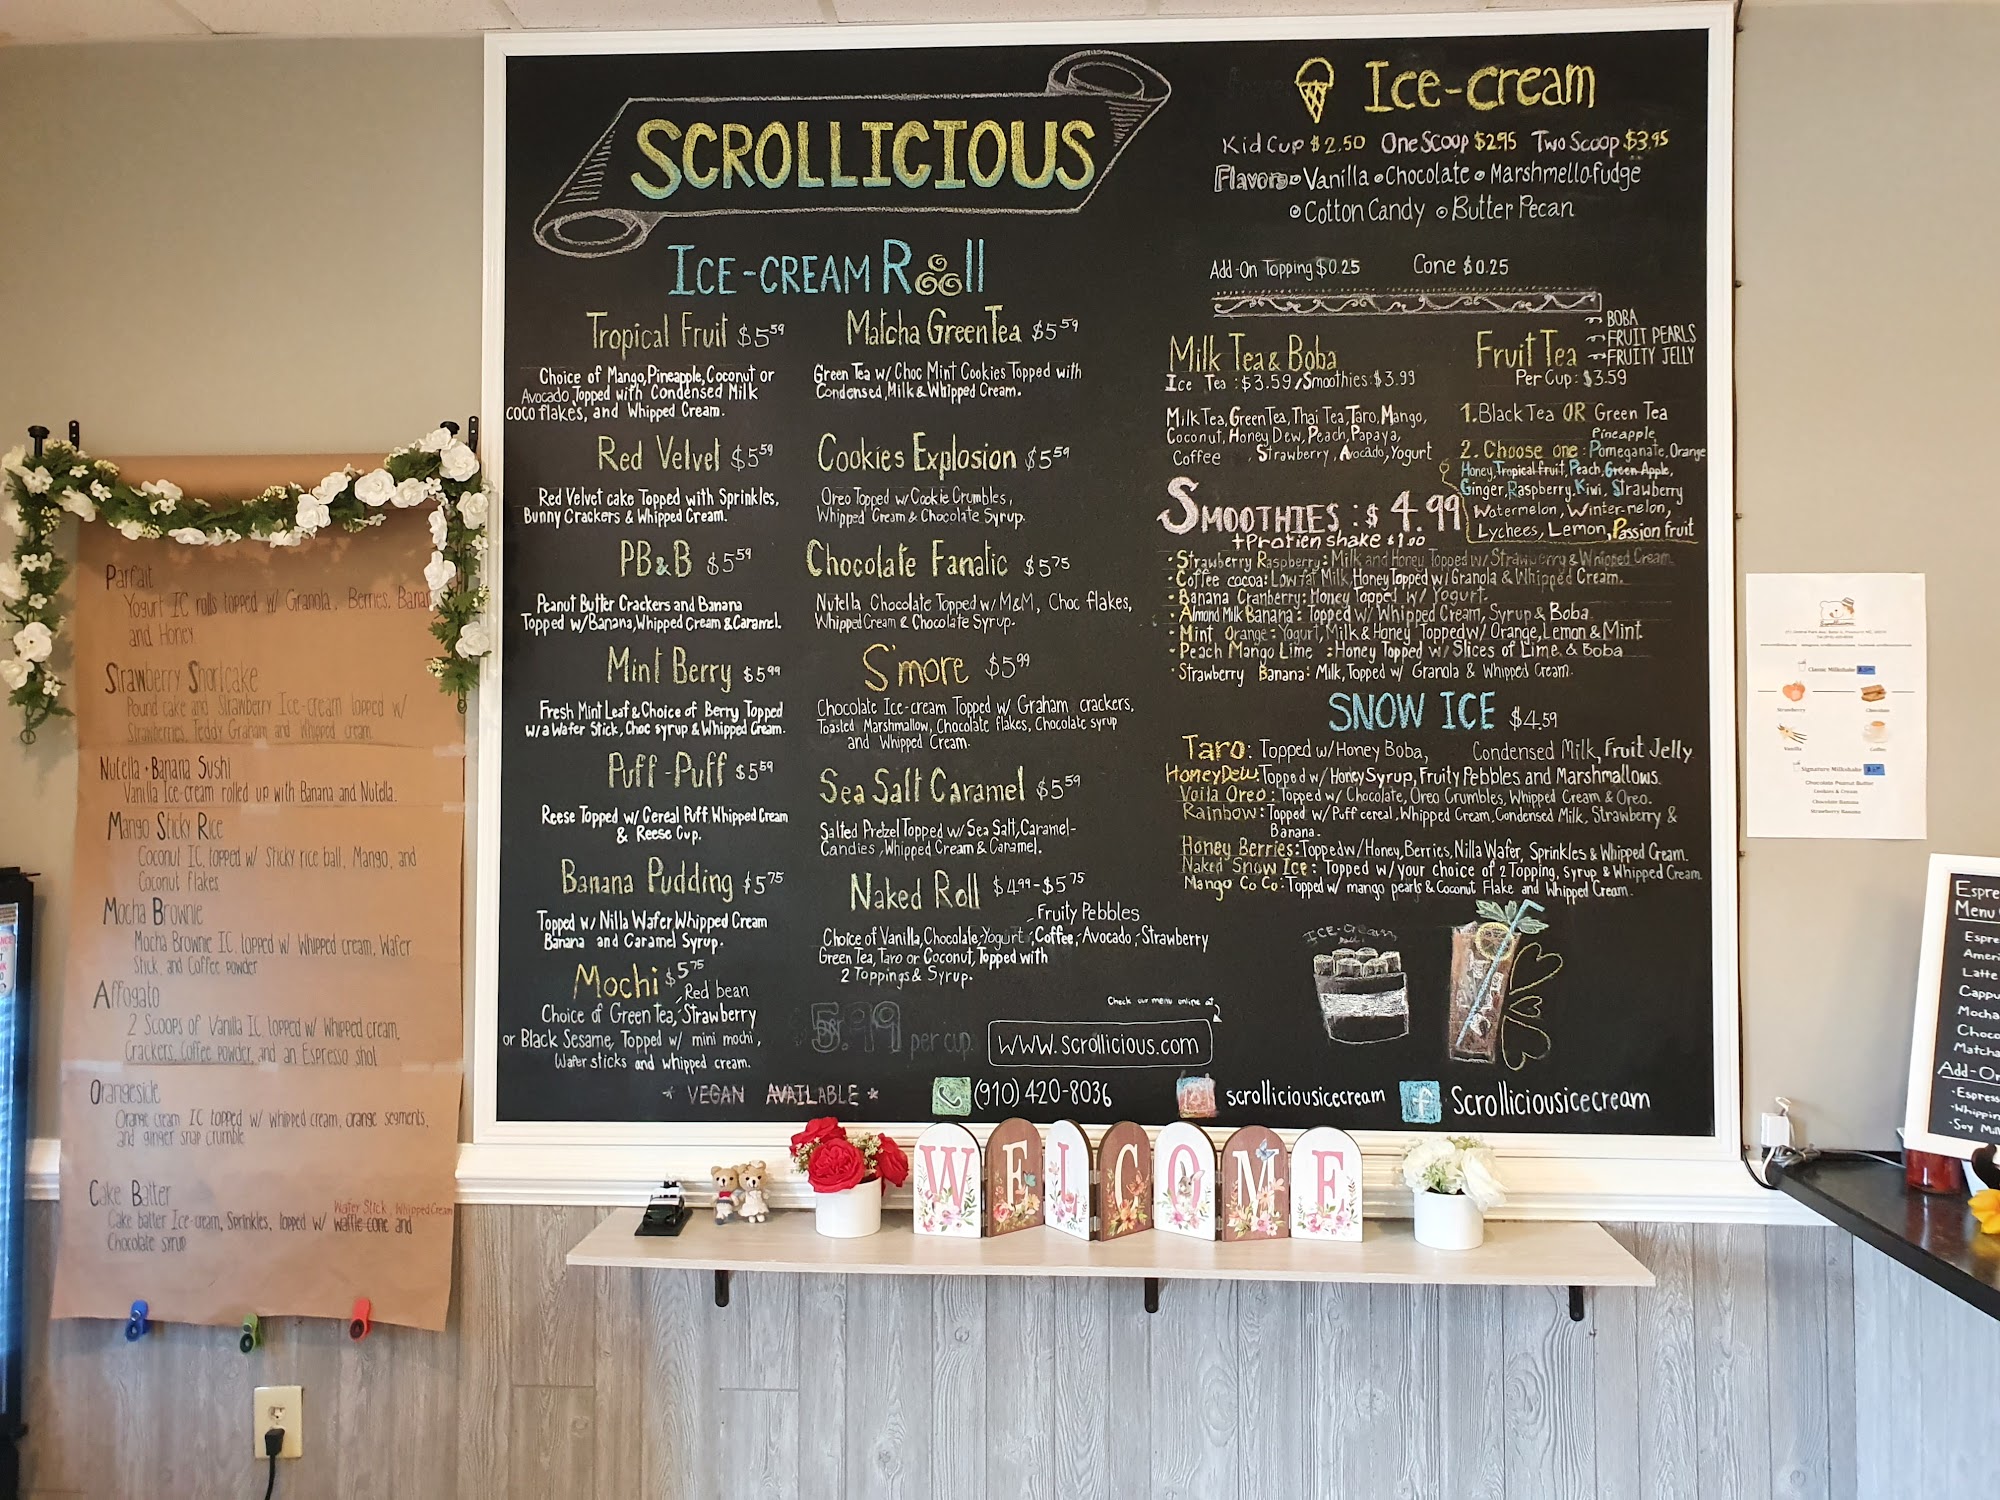 SCROLLICIOUS
ICE-CREAM Roll
Tropical Fruit $5.59
Choice of Mango, Pineapple, Coconut or
Avocado, Topped with Condensed Milk
coco flakes, and Whipped Cream.
Red Velvet $5.59
Red Velvet cake Topped with Sprinkles,
Bunny Crackers & Whipped Cream.
PB&B $5.59
Peanut Butter Crackers and Banana
Topped w/Banana, Whipped Cream & Caramel.
Mint Berry $5.99
Fresh Mint Leaf & Choice of Berry Topped
w/a Wafer Stick, Choc syrup & Whipped Cream.
Puff-Puff $5.59
Reese Topped w/ Cereal Puff, Whipped Cream
& Reese Cup.
Banana Pudding $5.75
Topped w/ Nilla Wafer, Whipped Cream
Banana and Caramel Syrup.
Mochi $5.75
Red bean
Choice of Green Tea, Strawberry
or Black Sesame, Topped w/ mini mochi,
Wafer sticks and whipped cream.
* VEGAN AVAILABLE *
Matcha Green Tea $5.59
Green Tea w/ Choc Mint Cookies Topped with
Condensed, Milk & Whipped Cream.
Cookies Explosion $5.59
Oreo Topped w/ Cookie Crumbles,
Whipped Cream & Chocolate Syrup.
Chocolate Fanatic $5.75
Nutella Chocolate Topped w/ M&M, Choc flakes,
Whipped Cream & Chocolate Syrup.
S'more $5.99
Chocolate Ice-cream Topped w/ Graham crackers,
Toasted Marshmallow, Chocolate flakes, Chocolate syrup
and Whipped Cream.
Sea Salt Caramel $5.59
Salted Pretzel Topped w/ Sea Salt, Caramel-
Candies, Whipped Cream & Caramel.
Naked Roll $4.99-$5.75
Fruity Pebbles
Choice of Vanilla, Chocolate, Yogurt, Coffee, Avocado, Strawberry
Green Tea, Taro or Coconut, Topped with
2 Toppings & Syrup.
$5.99 per cup
Check our menu online at
www.scrollicious.com
(910) 420-8036
scrolliciousicecream
Scrolliciousicecream
Ice-cream
Kid Cup $2.50 One Scoop $2.95 Two Scoop $3.95
Flavors Vanilla Chocolate Marshmello-fudge
Cotton Candy Butter Pecan
Add-On Topping $0.25 Cone $0.25
Milk Tea & Boba
Ice Tea: $3.59 / Smoothies: $3.99
Milk Tea, Green Tea, Thai Tea, Taro, Mango,
Coconut, Honey Dew, Peach, Papaya,
Coffee, Strawberry, Avocado, Yogurt
Fruit Tea
BOBA
FRUIT PEARLS
FRUITY JELLY
Per Cup: $3.59
1. Black Tea OR Green Tea
Pineapple
2. Choose one: Pomeganate, Orange
Honey, Tropical fruit, Peach, Green Apple,
Ginger, Raspberry, Kiwi, Strawberry
Watermelon, Winter-melon,
Lychees, Lemon, Passion fruit
SMOOTHIES: $4.99
+Protien shake $1.00
• Strawberry Raspberry: Milk and Honey Topped w/ Strawberry & Whipped Cream
• Coffee cocoa: Low fat Milk, Honey Topped w/ Granola & Whipped Cream.
• Banana Cranberry: Honey Topped w/ Yogurt.
• Almond Milk Banana: Topped w/ Whipped Cream, Syrup & Boba
• Mint Orange: Yogurt, Milk & Honey Topped w/ Orange, Lemon & Mint.
• Peach Mango Lime: Honey Topped w/ Slices of Lime & Boba
• Strawberry Banana: Milk, Topped w/ Granola & Whipped Cream.
SNOW ICE $4.59
Taro: Topped w/ Honey Boba, Condensed Milk, Fruit Jelly
HoneyDew: Topped w/ Honey Syrup, Fruity Pebbles and Marshmallows.
Voila Oreo: Topped w/ Chocolate, Oreo Crumbles, Whipped Cream & Oreo.
Rainbow: Topped w/ Puff cereal, Whipped Cream, Condensed Milk, Strawberry &
Banana.
Honey Berries: Topped w/ Honey, Berries, Nilla Wafer, Sprinkles & Whipped Cream.
Naked Snow Ice: Topped w/ your choice of 2 Topping, syrup & Whipped Cream
Mango Co Co: Topped w/ mango pearls & Coconut Flake and Whipped Cream.
ICE-cream
Roll
Parfait
Yogurt IC rolls topped w/ Granola, Berries,
and Honey
Strawberry Shortcake
Pound cake and Strawberry Ice-cream topped w/
Strawberries, Teddy Graham and Whipped cream
Nutella • Banana Sushi
Vanilla Ice-cream rolled up with Banana and Nutella.
Mango Sticky Rice
Coconut IC topped w/ Sticky rice ball, Mango, and
Coconut flakes
Mocha Brownie
Mocha Brownie IC topped w/ Whipped cream, Wafer
Stick, and Coffee powder
Affogato
2 Scoops of Vanilla IC topped w/ Whipped cream,
Crackers, Coffee powder, and an Espresso shot
Orangesicle
Orange cream IC topped w/ whipped cream, orange segments,
and ginger snap crumble
Cake Batter
Wafer Stick, Whipped Cream
Cake batter Ice-cream, Sprinkles, topped w/ waffle cone and
Chocolate syrup
WELCOME
Classic Milkshake
Strawberry
Chocolate
Vanilla
Coffee
Signature Milkshake
Chocolate Peanut Butter
Cookies & Cream
Chocolate Banana
Strawberry Banana
Espre
Menu
Espre
Ameri
Latte
Cappu
Mocha
Choco
Matcha
Add-On
-Espress
-Whippin
-Soy Mil